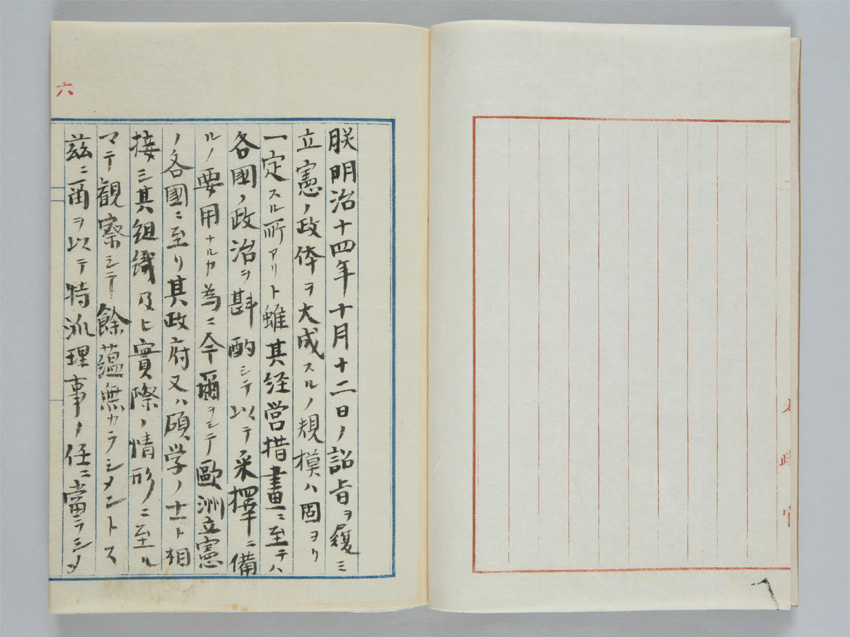 朕明治十四年十月十二日ノ詔旨ヲ履ミ
立憲ノ政体ヲ大成スルノ規模ハ固ヨリ
一定スル所アリト雖其経営措畫ニ至テハ
各國ノ政治ヲ斟酌シテ以テ采擇ニ備
ルノ要用ナルカ為ニ今爾ヲシテ歐洲立憲
ノ各國ニ至リ其政府又ハ碩学ノ士ト相
接シ其組織及ヒ實際ノ情形ニ至ル
マテ観察シテ餘蘊無カラシメントス
茲ニ爾ヲ以テ特派理事ノ任ニ當ラシメ
六
太政官